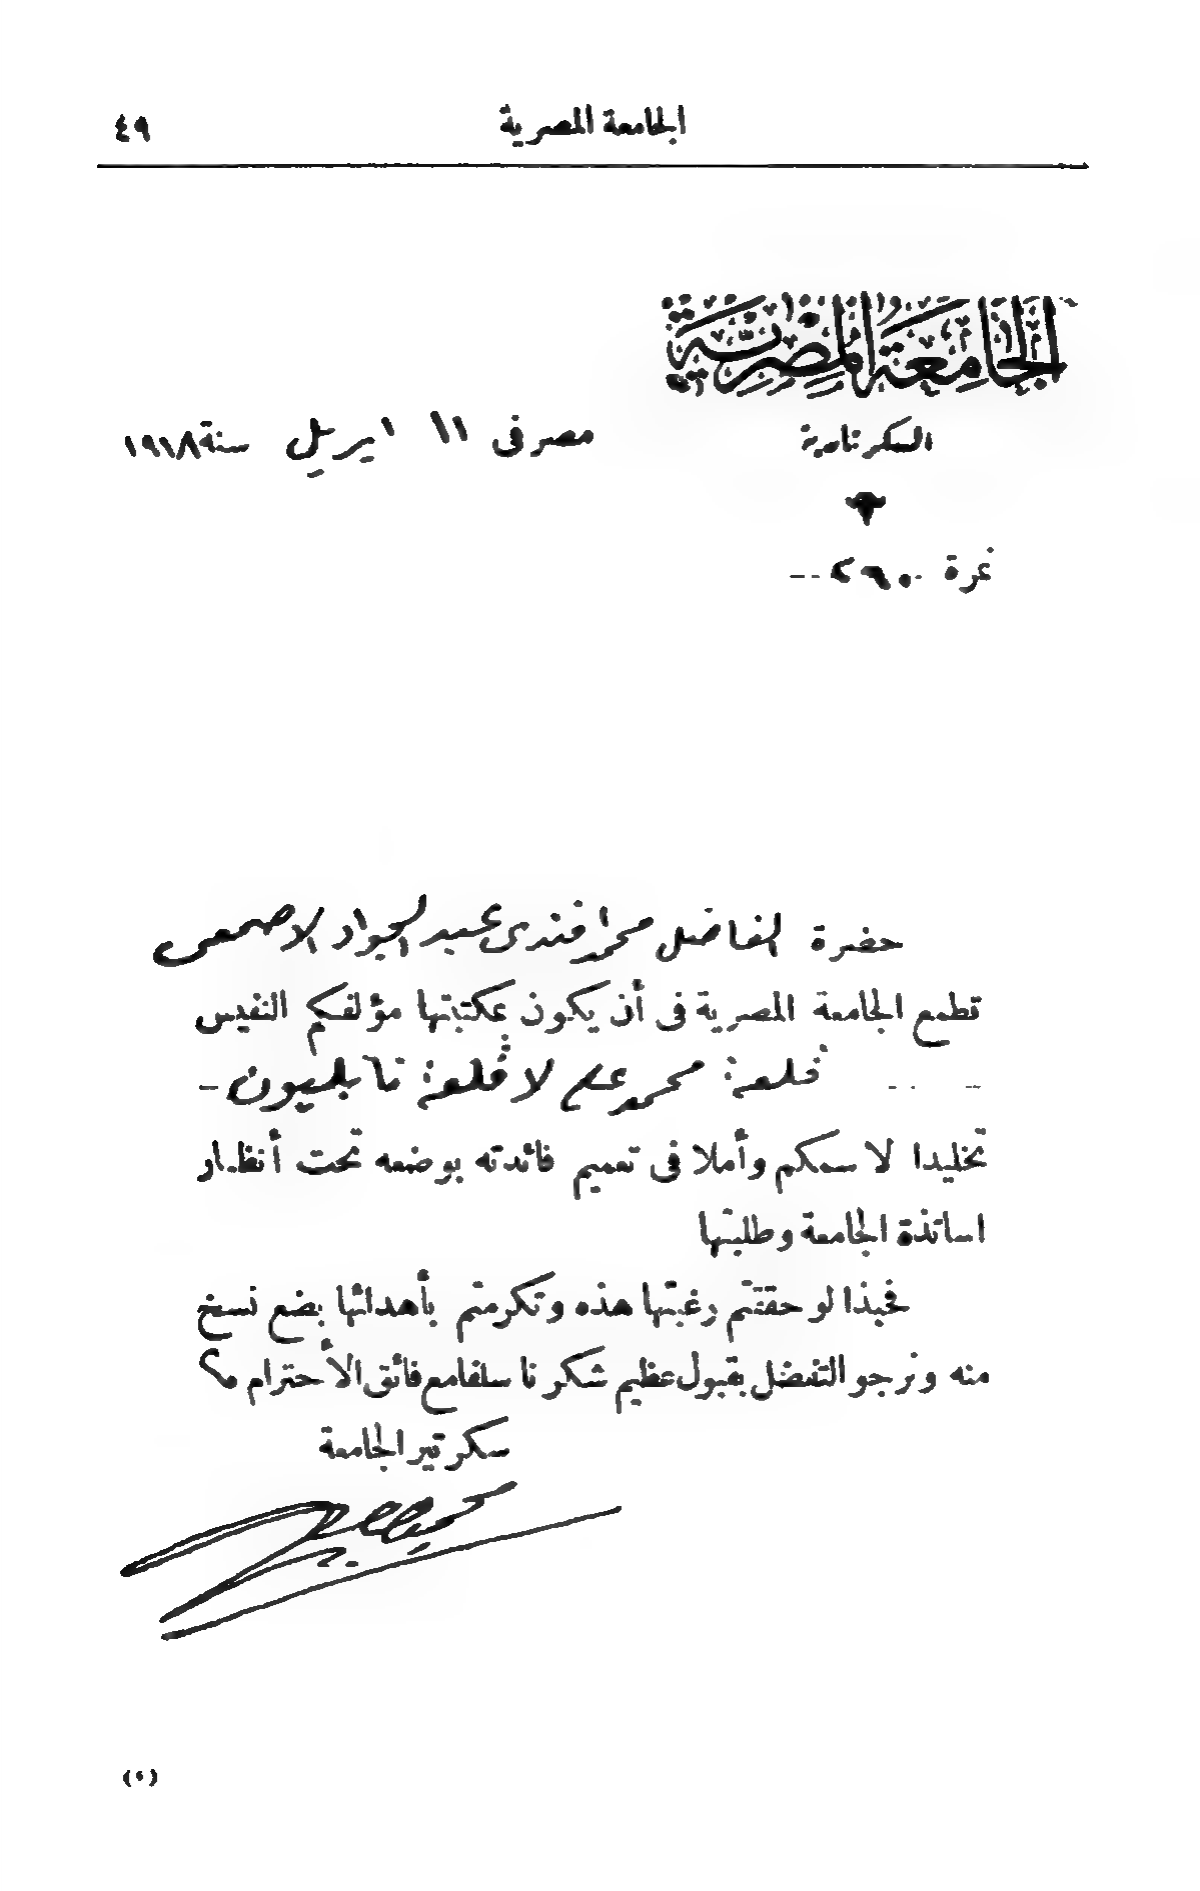 الجامعة المصرية
٤٩
الجامعة المصرية
السكرتارية
مصر فى ١١ ابريل سنة ١٩١٨
نمرة ٢٦٠٠
حضرة الفاضل محمد افندى عبد الجواد الاصمعى
تطمع الجامعة المصرية فى أن يكون بمكتبتها مؤلفكم النفيس
قلعة محمد على لا قلعة نابليون
تخليدا لاسمكم وأملا فى تعميم فائدته بوضعه تحت أنظار
اساتذة الجامعة وطلبتها
فحبذا لو حققتم رغبتها هذه وتكرمتم بأهدائها بضع نسخ
منه ونرجو التفضل بقبول عظيم شكرنا سلفا مع فائق الأحترام
سكرتير الجامعة